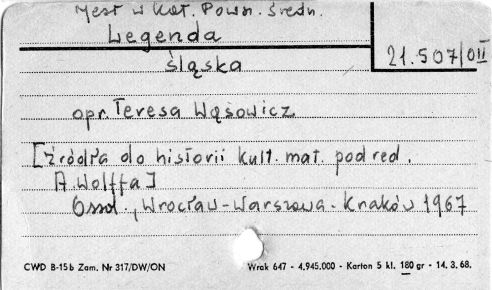 Jest w Kat. Powsz. Średn.
Legenda
śląska
21.507/OII
opr. Teresa Wąsowicz
[Źródła do historii kult. mat. pod red.
A. Wolffa]
Ossol., Wrocław-Warszawa-Kraków 1967
CWD B-15b Zam. Nr 317/DW/ON
Wrak 647 - 4.945.000 - Karton 5 kl. 180 gr - 14. 3. 68.